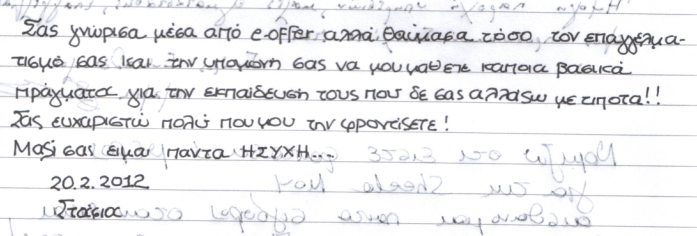 Σας γνώρισα μέσα από e-offer αλλά θαύμασα τόσο τον επαγγελμα-
τισμό σας και την υπομονή σας να μου μαθετε καποια βασικά
πράγματα για την εκπαίδευση τους που δε σας αλλάζω με τιποτα!!
Σας ευχαριστώ πολύ που μου την φροντίσετε!
Μαζί σας ειμαι παντα ΗΣΥΧΗ...
20.2.2012